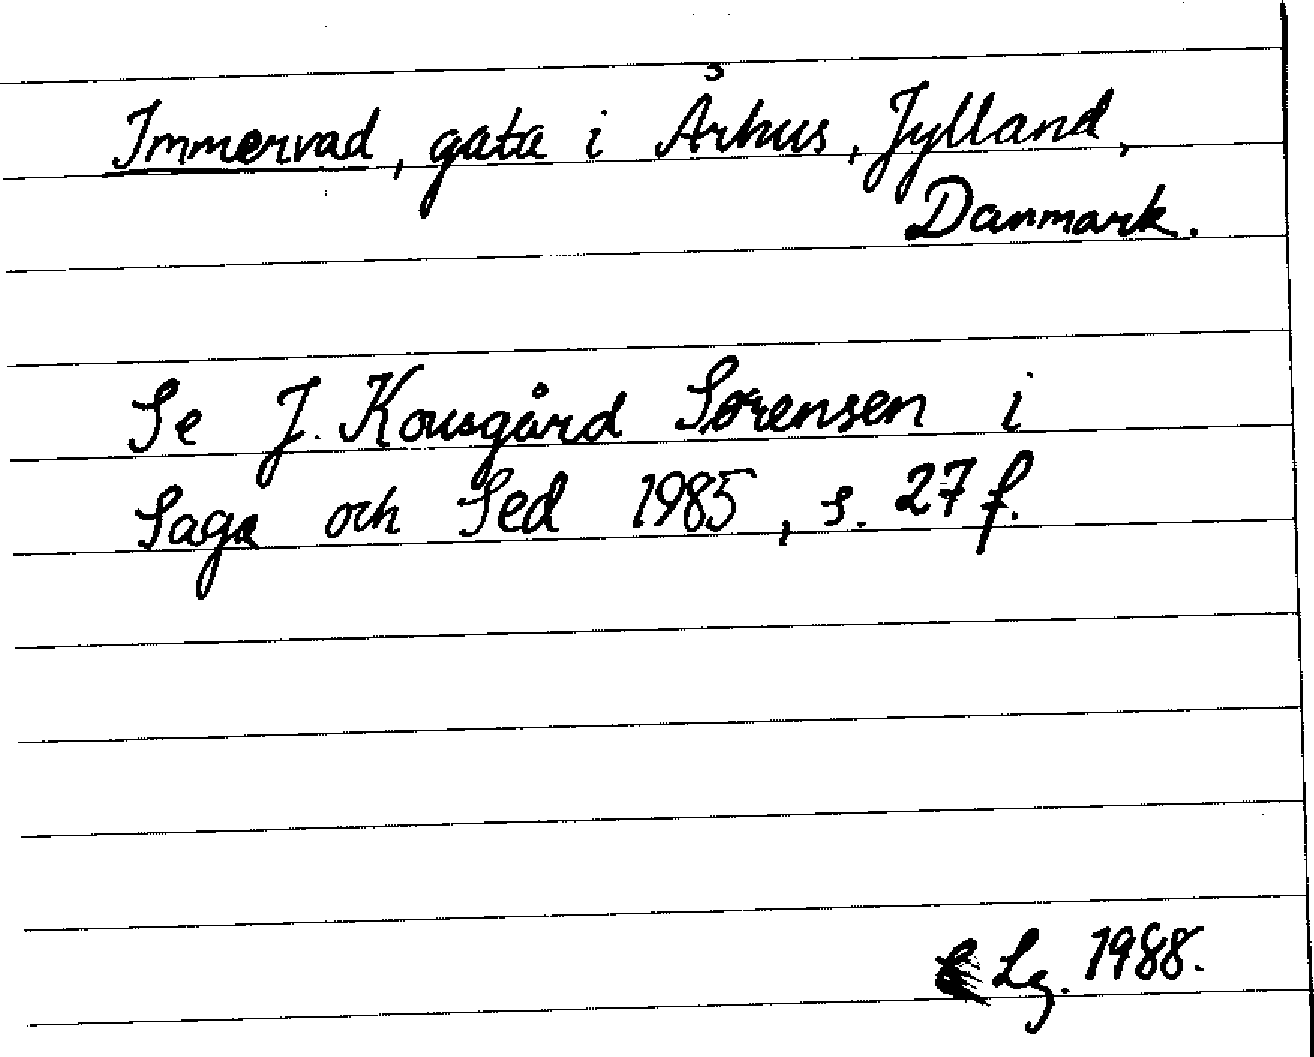 Immervad, gata i Århus, Jylland,
Danmark.
Se J. Kousgård Sørensen i
Saga och Sed 1985, s. 27 f.
Lg. 1988.